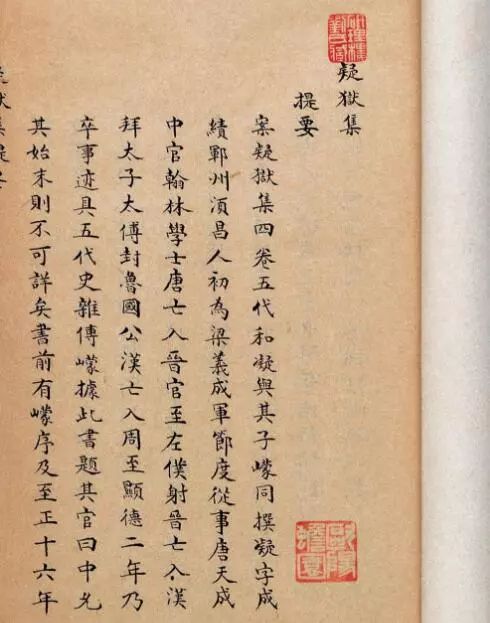 研理樓劉氏藏
疑獄集
提要
案疑獄集四卷五代和凝與其子㠓同撰凝字成
績鄆州湏昌人初為梁義成軍節度從事唐天成
中官翰林學士唐亡入晉官至左僕射晉亡入漢
拜太子太傅封魯國公漢亡入周至顯德二年乃
卒事迹具五代史雜傳㠓據此書題其官曰中允
其始末則不可詳矣書前有㠓序及至正十六年
疑獄集提要